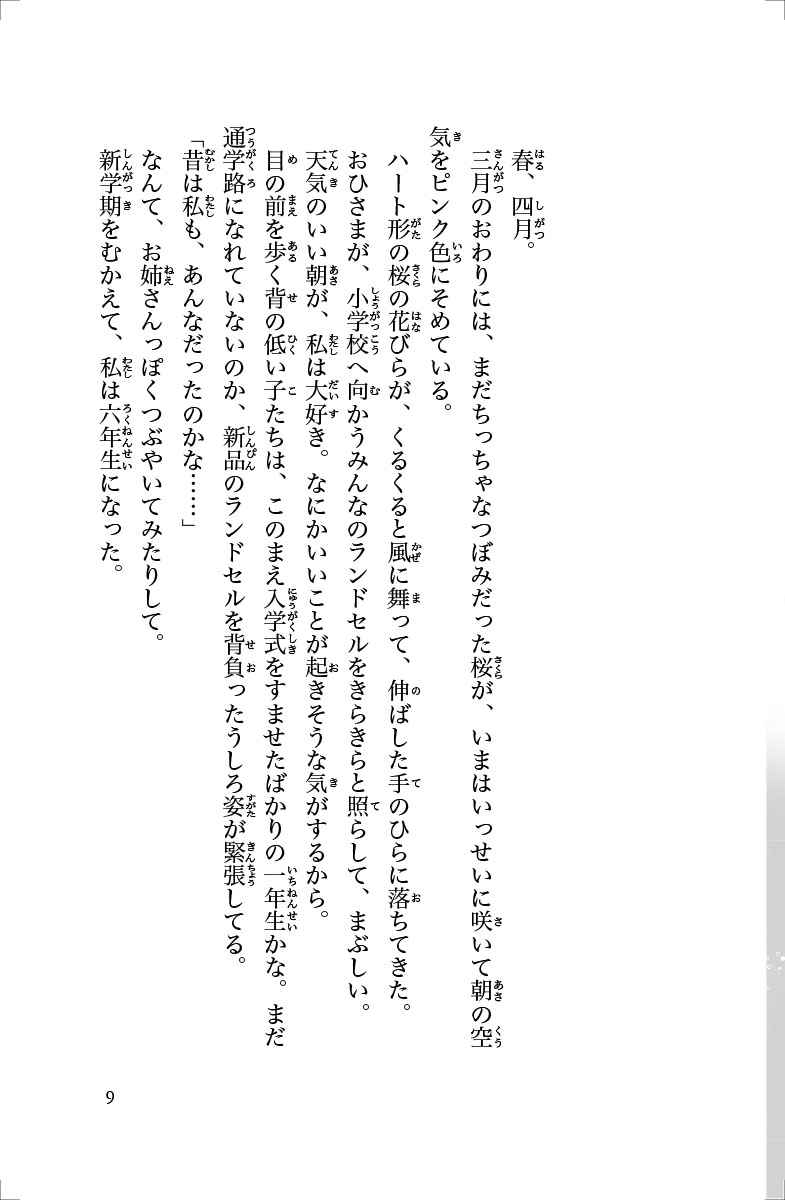 春、四月。
三月のおわりには、まだちっちゃなつぼみだった桜が、いまはいっせいに咲いて朝の空
気をピンク色にそめている。
ハート形の桜の花びらが、くるくると風に舞って、伸ばした手のひらに落ちてきた。
おひさまが、小学校へ向かうみんなのランドセルをきらきらと照らして、まぶしい。
天気のいい朝が、私は大好き。なにかいいことが起きそうな気がするから。
目の前を歩く背の低い子たちは、このまえ入学式をすませたばかりの一年生かな。まだ
通学路になれていないのか、新品のランドセルを背負ったうしろ姿が緊張してる。
「昔は私も、あんなだったのかな……」
なんて、お姉さんっぽくつぶやいてみたりして。
新学期をむかえて、私は六年生になった。
9